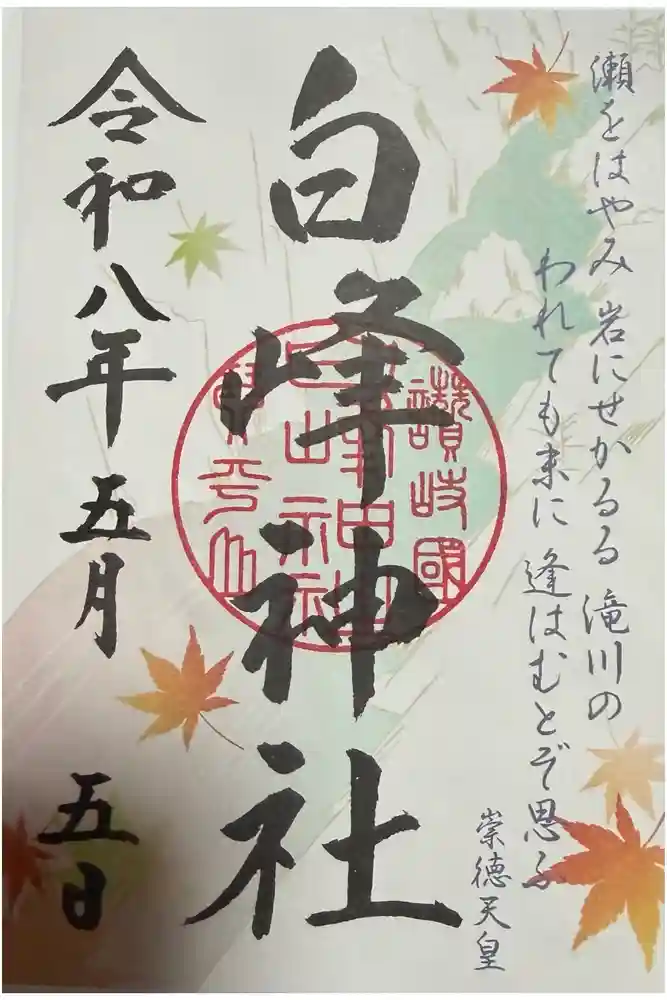 瀬をはやみ 岩にせかるる 滝川の
われても末に 逢はむとぞ思ふ
崇徳天皇
白峰神社
讃岐國
令和八年 五月 五日